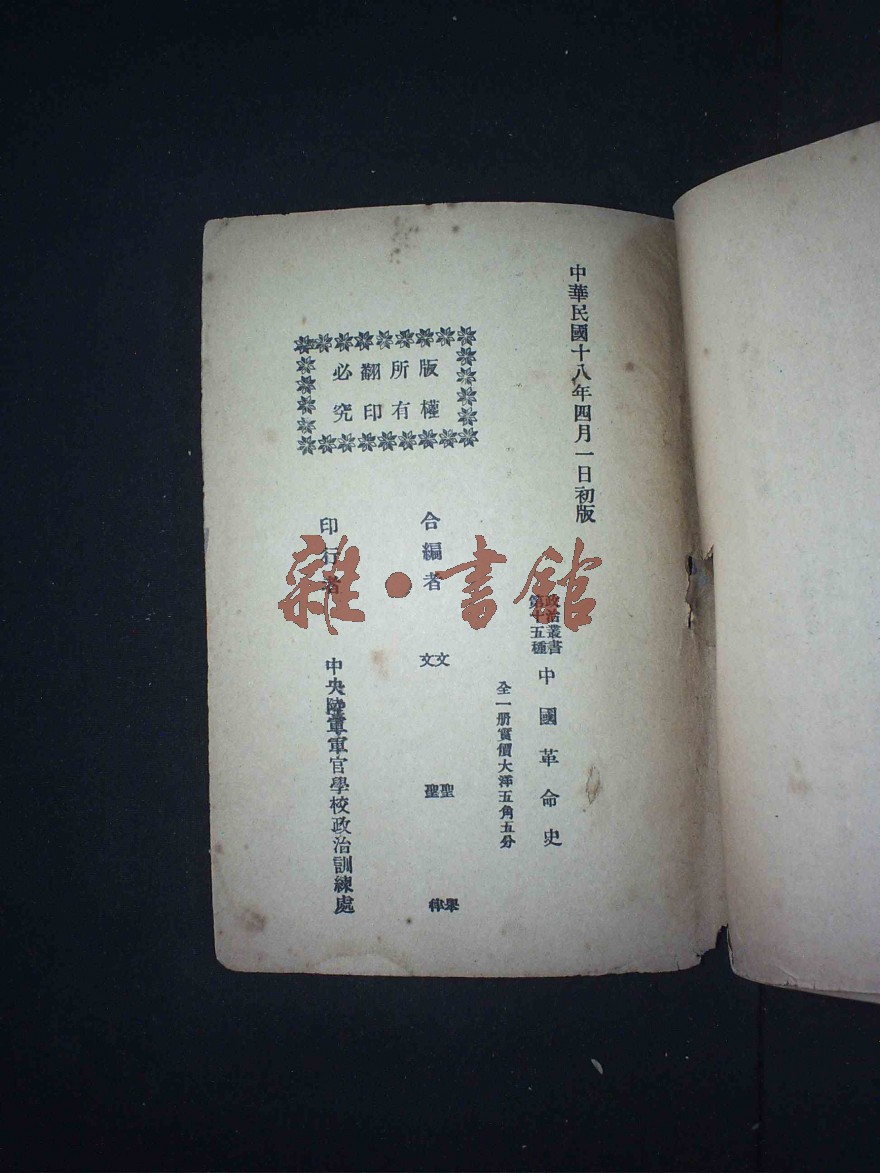 中華民國十八年四月一日初版
政治叢書
第十五種
中國革命史
全一册實價大洋五角五分
版權
所有
翻印
必究
合編者
文聖舉
文聖律
印行者
中央陸軍軍官學校政治訓練處
雜·書館